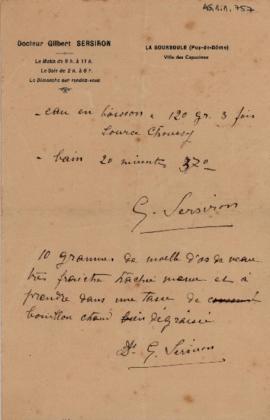 AS.RIR. 757
Docteur Gilbert SERSIRON
LA BOURBOULE (Puy-de-Dôme)
Villa des Capucines
Le Matin de 9 h. à 11 h.
Le Soir de 2 h. à 6 h.
Le Dimanche sur rendez-vous
- eau en boisson = 120 gr. 3 fois
Source Choussy
- bain 20 minutes 370
G. Sersiron
10 grammes de moelle d'os de veau
très fraîche hachée menu et à
prendre dans une tasse de
bouillon chaud bien dégraissé
Dr G. Sersiron